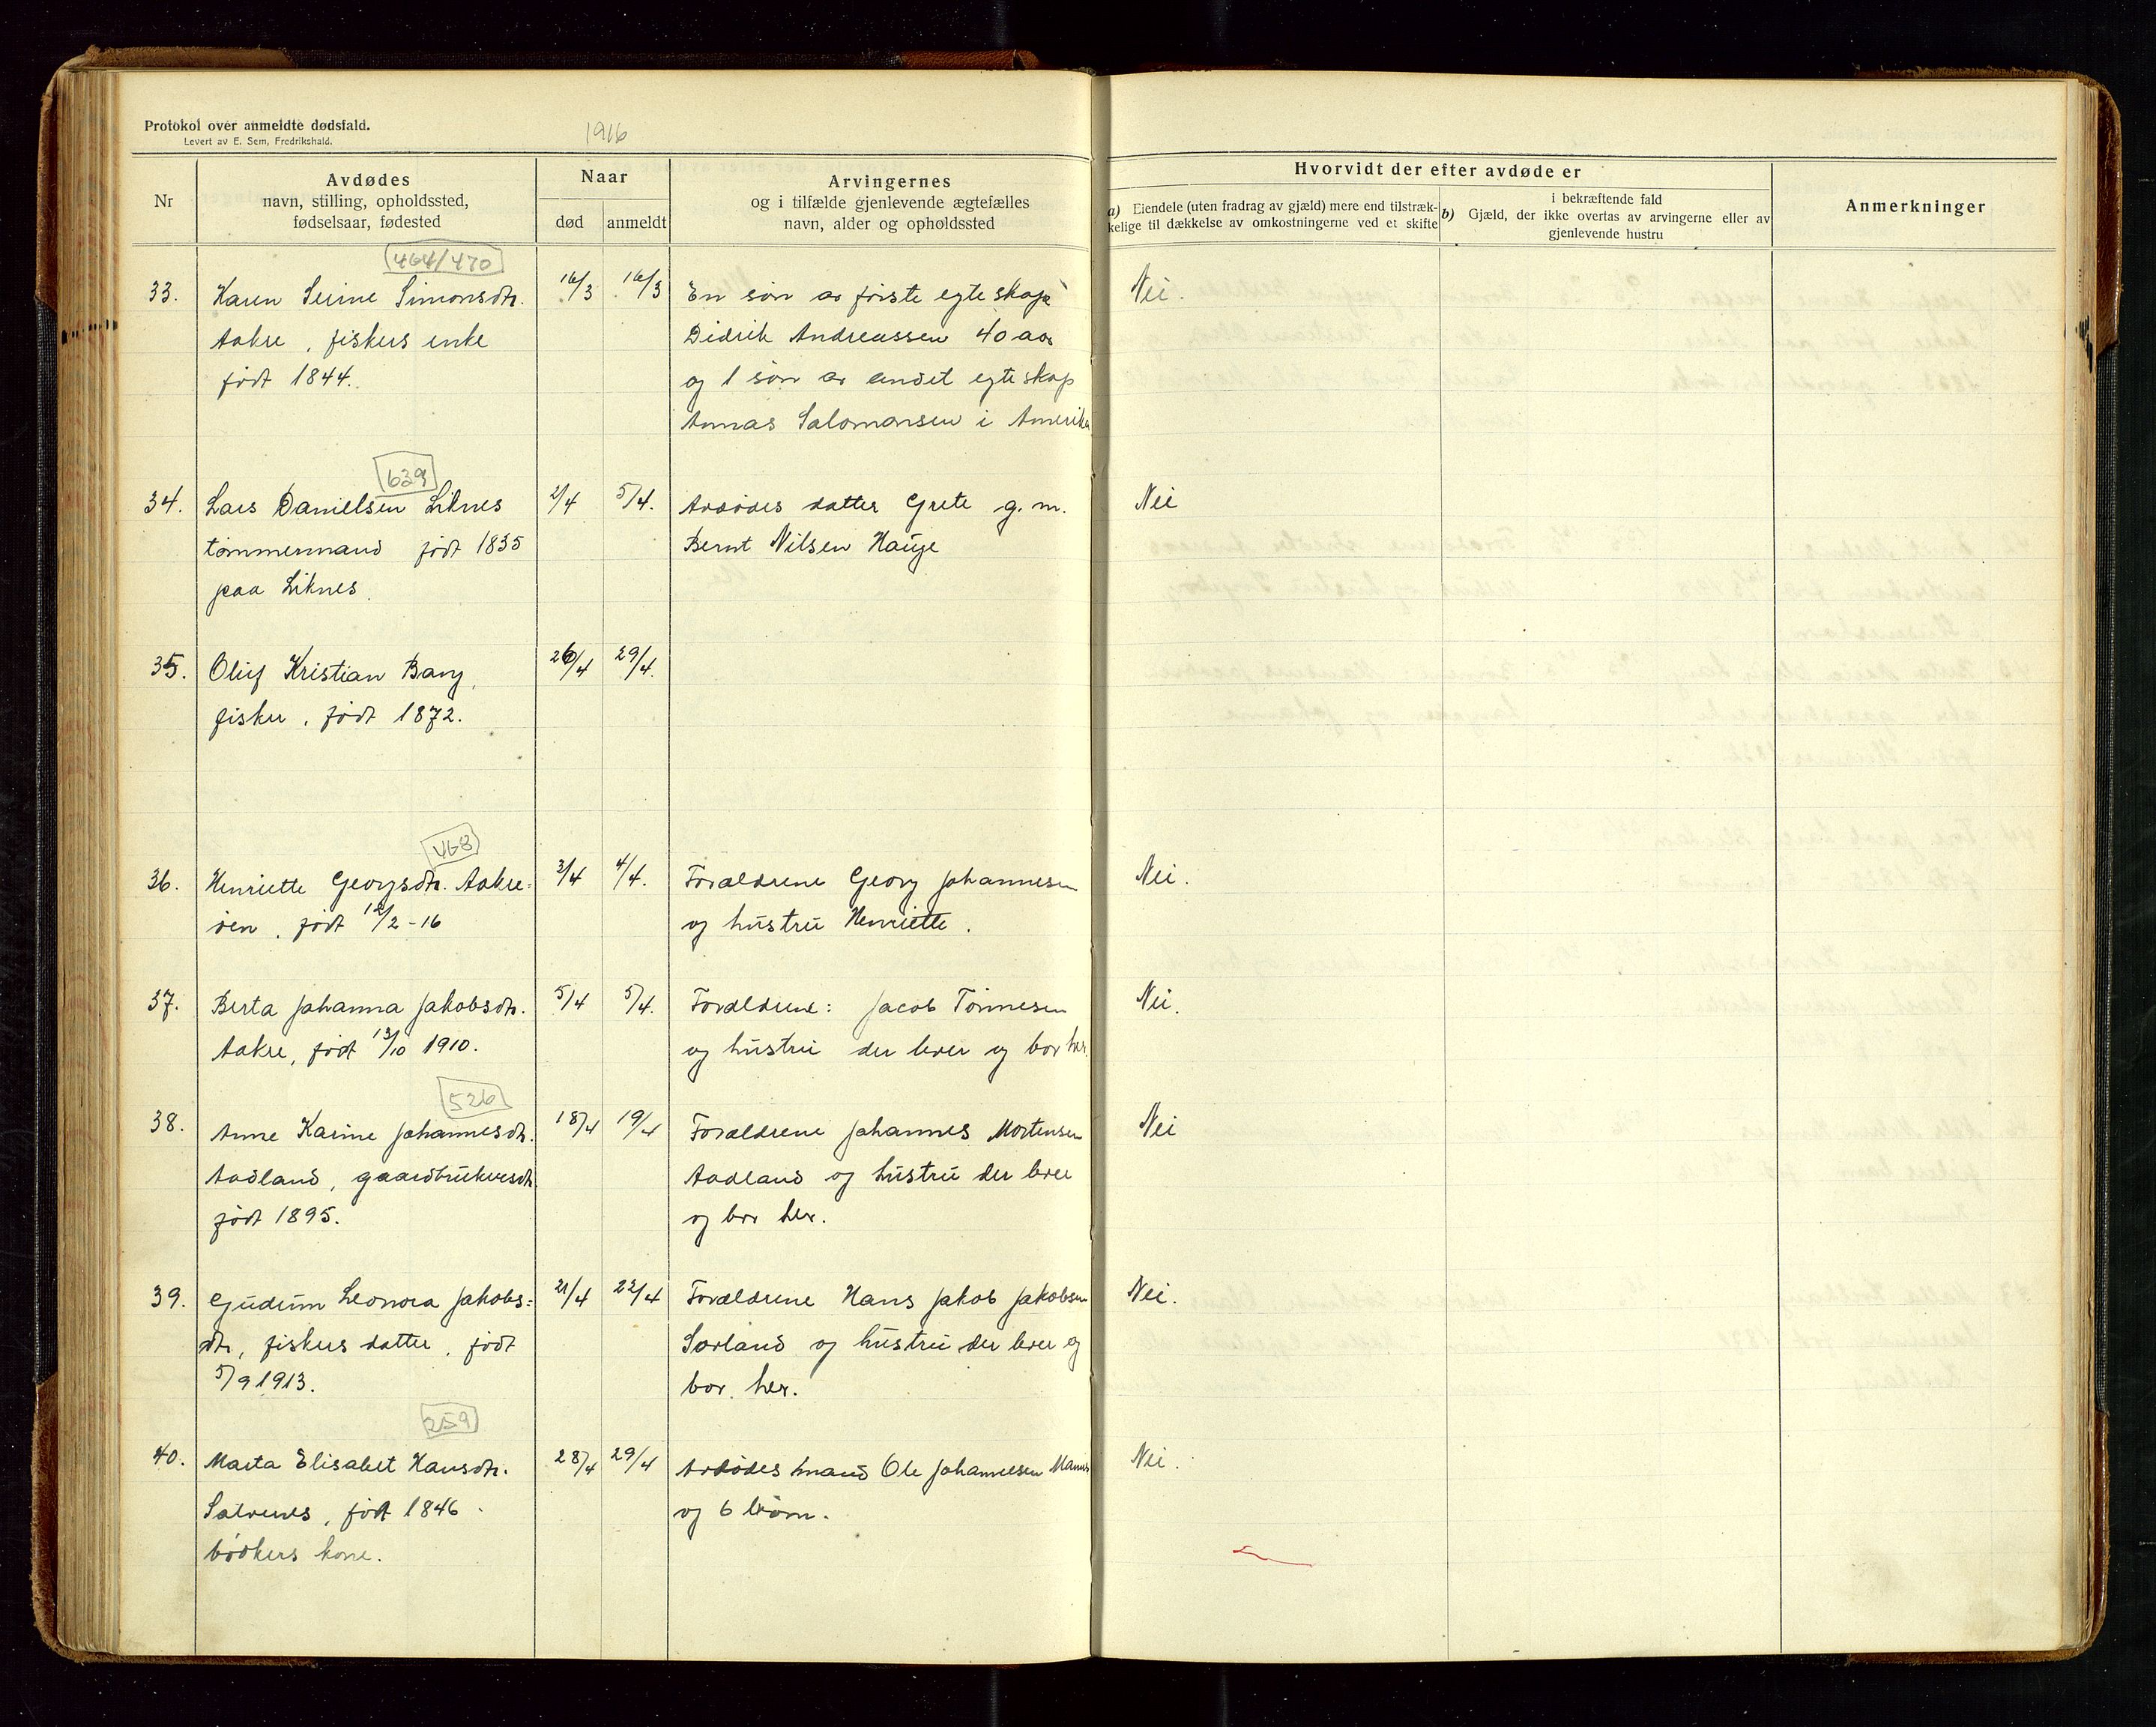 Protokol over anmeldte dødsfald.
Levert av E. Sem, Fredrikshald.
1916
Nr
Avdødes
navn, stilling, opholdssted,
fødselsaar, fødested
Naar
død
anmeldt
Arvingernes
og i tilfælde gjenlevende ægtefælles
navn, alder og opholdssted
Hvorvidt der efter avdøde er
a) Eiendele (uten fradrag av gjæld) mere end tilstræk-
kelige til dækkelse av omkostningerne ved et skifte
i bekræftende fald
b) Gjæld, der ikke overtas av arvingerne eller av
gjenlevende hustru
Anmerkninger
464/470
33. Karen Serine Simonsdtr. 16/3 16/3 En søn av første egteskap Nei.
Aakre, fiskers enke Didrik Andreassen 40 aar
født 1844. og 1 søn av andet egteskap
Salomonsen i Amerika
629
34. Lars Danielsen Liknes 2/4 5/4. Avdødes datter Grete g.m. Nei
tømmermand født 1835 Bernt Nilsen Hauge
paa Liknes.
35. Oluf Kristian Bang, 26/4 29/4.
fisker, født 1872.
468
36. Henriette Georgsdtr. Aakre= 3/4 4/4. Forældrene Georg Johannesen Nei.
øen, født 12/2-16 og hustru Henriette.
37. Berta Johanna Jakobsdtr. 5/4 5/4. Forældrene: Jacob Tønnesen Nei.
Aakre, født 13/10 1910. og hustru der lever og bor her.
526
38. Anne Karine Johannesdtr. 18/4 19/4 Forældrene Johannes Mortensen Nei
Aadland, gaardbrukersdtr. Aadland og hustru der lever
født 1895. og bor her.
39. Gudrun Leonora Jakobs= 21/4 22/4 Forældrene Hans Jakob Jakobsen Nei.
dtr, fiskers datter, født Sørland og hustru der lever og
5/9 1913. bor her.
259
40. Marta Elisabet Hansdtr. 28/4 29/4 Avdødes mand Ole Johannesen Nei.
født 1846 og 6 børn.
bødkers kone.